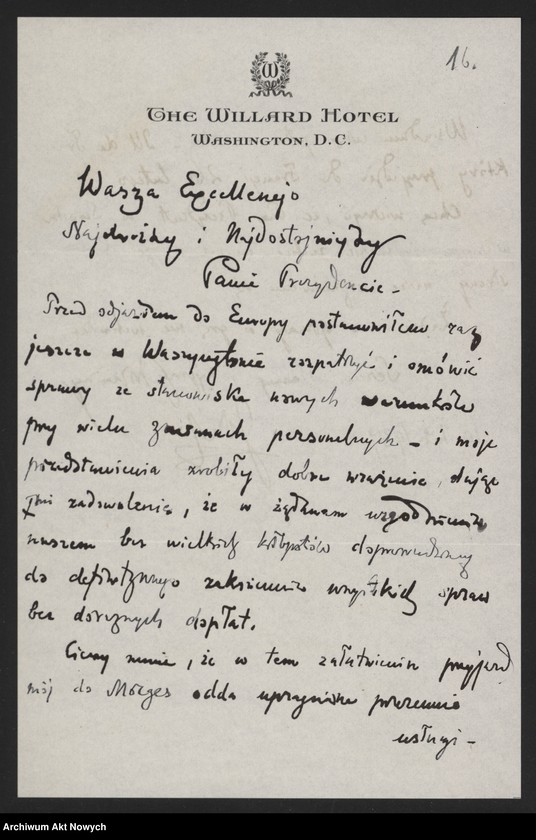 16.
W
THE WILLARD HOTEL
WASHINGTON, D.C.
Wasza Excellencjo
Najdroższy i Najdostojniejszy
Panie Prezydencie –
Przed odjazdem do Europy postanowiłem raz
jeszcze w Waszyngtonie rozpatrzyć i omówić
sprawy ze stanowiska nowych warunków
przy wielu zmianach personalnych – i moje
przedstawienia zrobiły dobre wrażenie, dając
mi zadowolenie, że w żądaniem
naszem bez wielkich kłopotów doprowadzony
do definitywnego zakończenia wszystkich spraw
bez dorywczych dopłat.
Cieszy mnie, że w tem załatwieniu przyjazd
mój do Morges odda
usługi –
Archiwum Akt Nowych